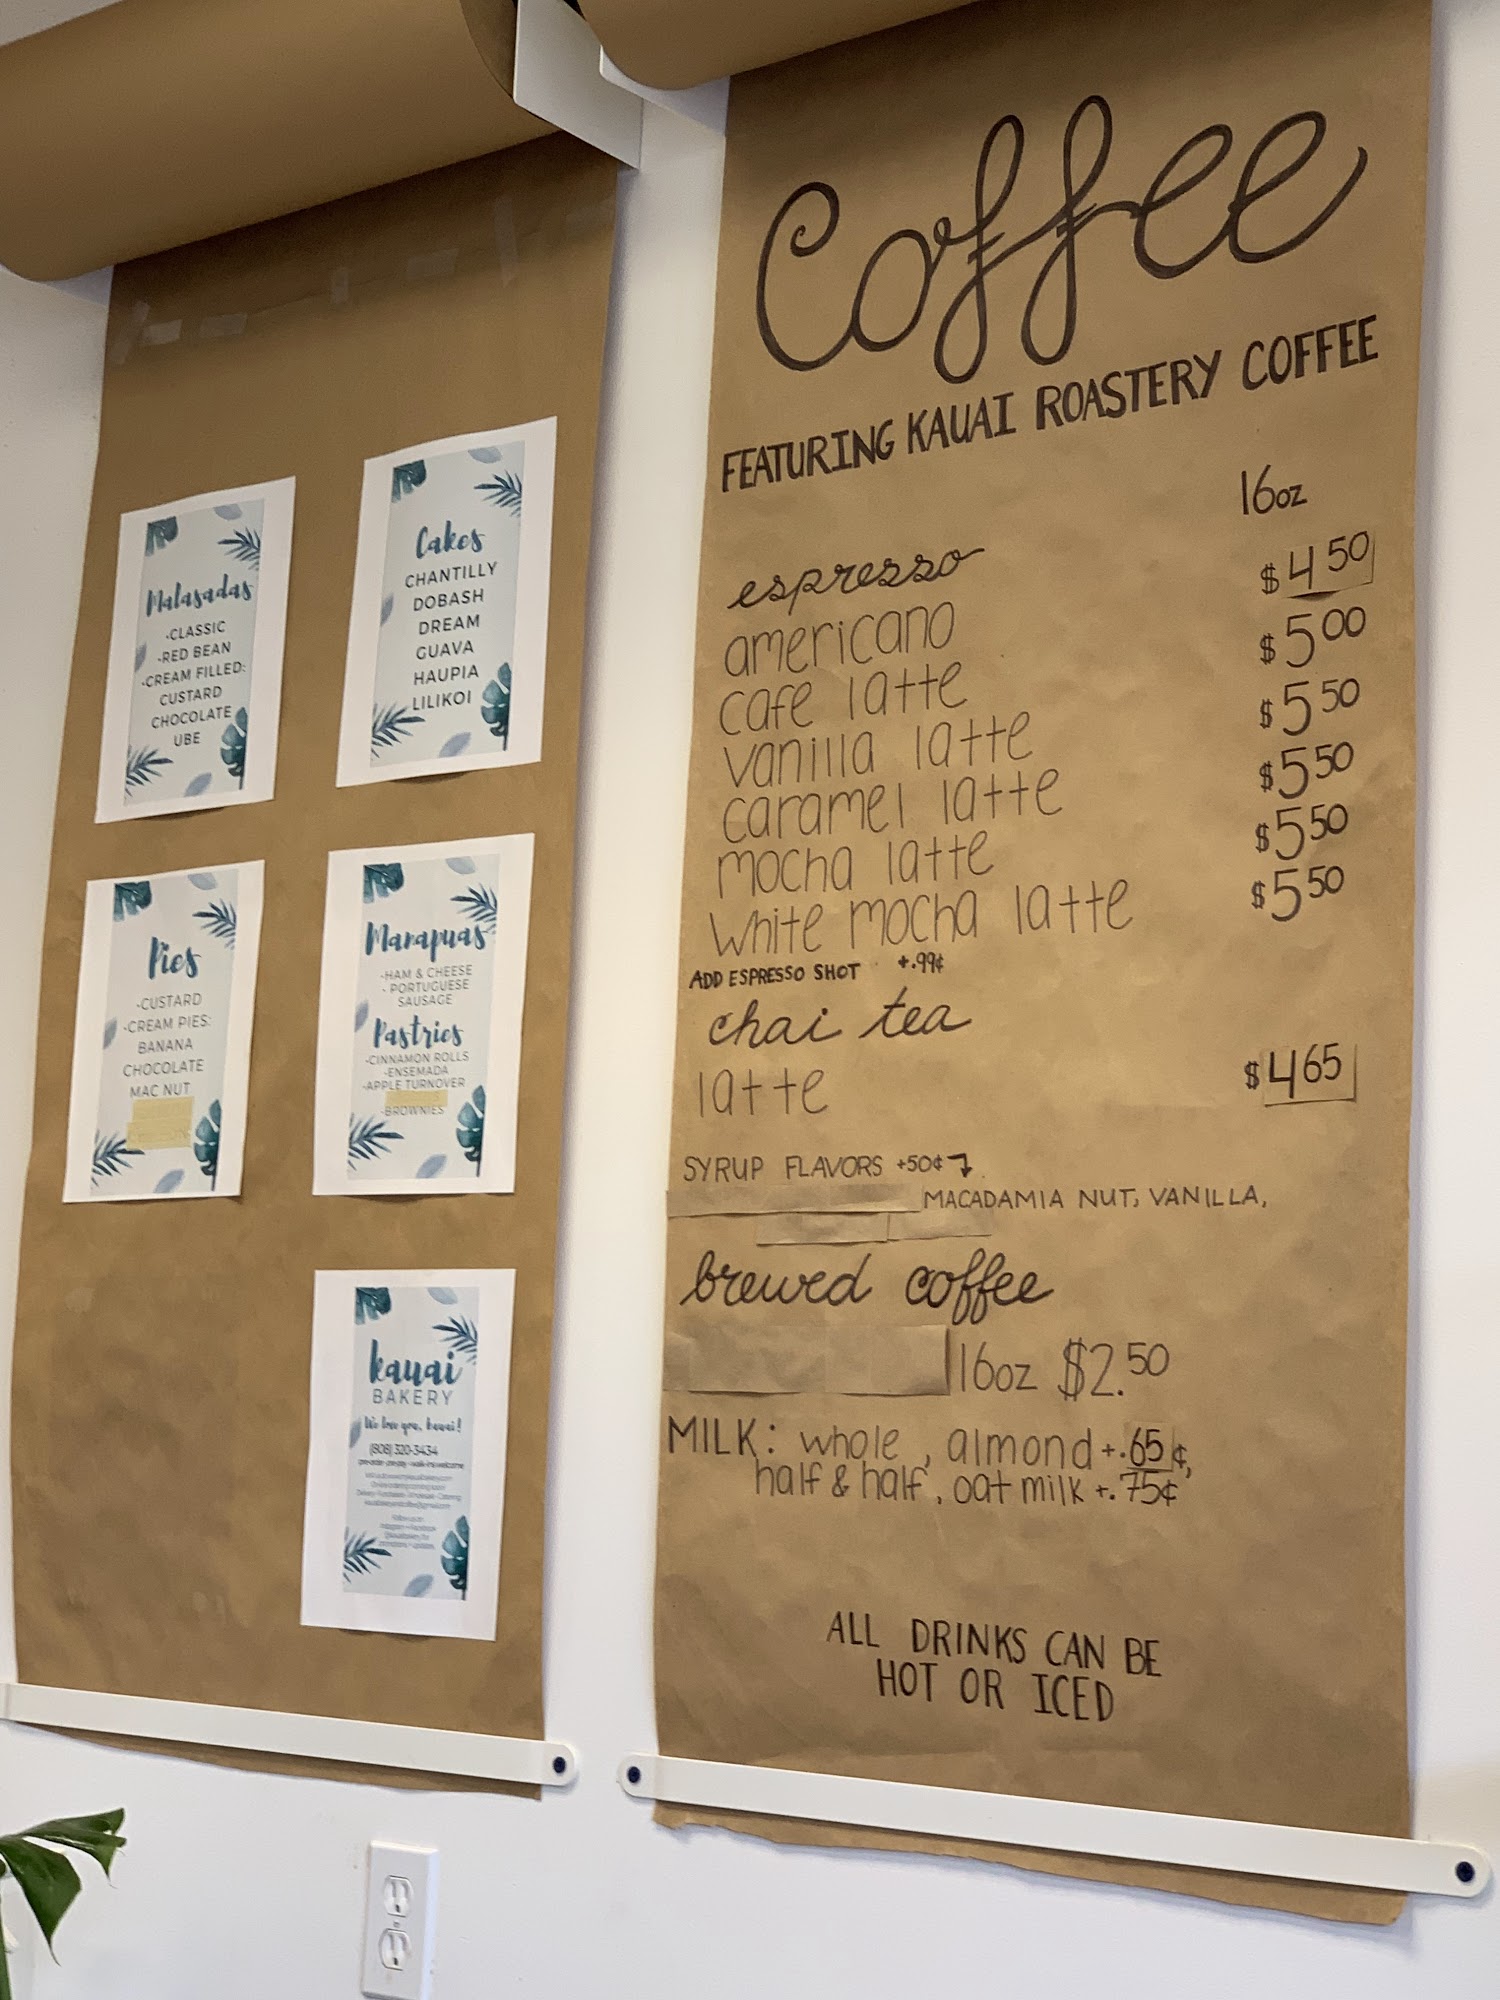 Malasadas
-CLASSIC
-RED BEAN
-CREAM FILLED:
CUSTARD
CHOCOLATE
UBE
Cakes
CHANTILLY
DOBASH
DREAM
GUAVA
HAUPIA
LILIKOI
Pies
-CUSTARD
-CREAM PIES:
BANANA
CHOCOLATE
MAC NUT
Manapuas
-HAM & CHEESE
- PORTUGUESE
SAUSAGE
Pastries
-CINNAMON ROLLS
-ENSEMADA
-APPLE TURNOVER
-BROWNIES
kauai
BAKERY
We love you, kauai!
(808) 320-3434
Coffee
FEATURING KAUAI ROASTERY COFFEE
16oz
espresso
americano $4 50
cafe latte $5 00
vanilla latte $5 50
caramel latte $5 50
mocha latte $5 50
white mocha latte $5 50
ADD ESPRESSO SHOT +.99¢
chai tea
latte $4 65
SYRUP FLAVORS +50¢
MACADAMIA NUT, VANILLA,
brewed coffee
16oz $2.50
MILK: whole, almond +.65¢,
half & half, oat milk +.75¢
ALL DRINKS CAN BE
HOT OR ICED